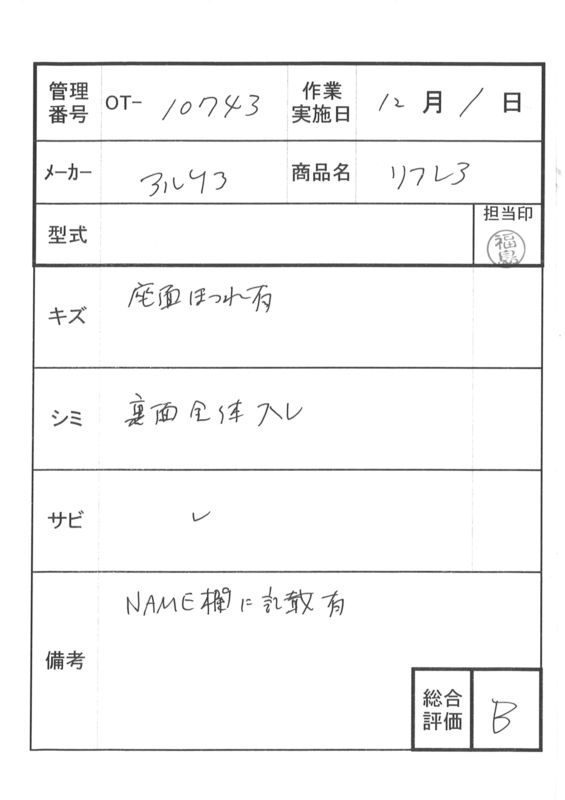 管理番号 OT- 10743 作業実施日 12月1日
メーカー アルケア 商品名 リフレア
型式 担当印 福島
キズ 座面ほつれ有
シミ 裏面全体スレ
サビ レ
備考 NAME欄に記載有
総合評価 B